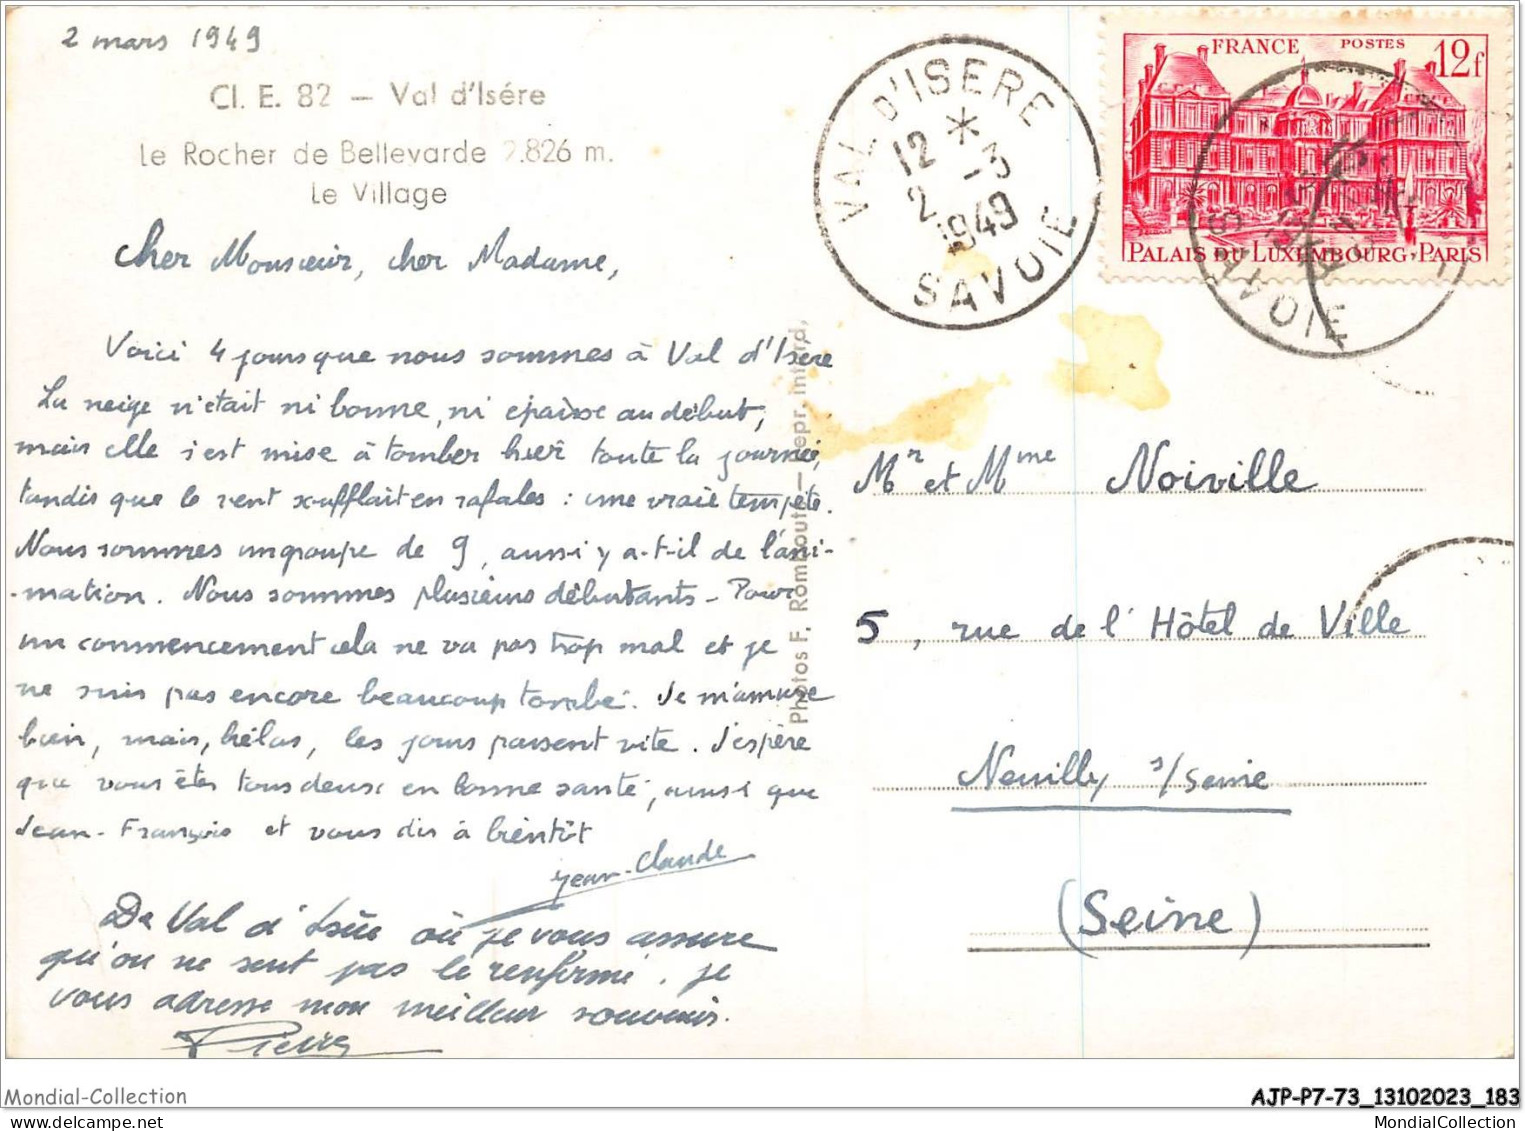 2 mars 1949
Cl. E. 82 — Val d'Isére
Le Rocher de Bellevarde 2.826 m.
Le Village
Cher Monsieur, cher Madame,
Voici 4 jours que nous sommes à Val d'Isère
La neige n'était ni bonne, ni épaisse au début,
mais elle s'est mise à tomber hier toute la journée,
tandis que le vent soufflait en rafales : une vraie tempête.
Nous sommes un groupe de 9, aussi y a-t-il de l'ani-
-mation. Nous sommes plusieurs débutants - Pour
un commencement cela ne va pas trop mal et je
ne suis pas encore beaucoup tombé. Je m'amuse
bien, mais, hélas, les jours passent vite. J'espère
que vous êtes tous deux en bonne santé, ainsi que
Jean-François et vous dis à bientôt
Jean-Claude
De Val d'Isère où je vous assure
qu'on ne sent pas le renfermé, je
vous adresse mon meilleur souvenir.
Pierre
Photos F. Rombouts — Repr. interd,
VAL D'ISERE
12 * -3
2 1949
SAVOIE
FRANCE POSTES 12f
PALAIS DU LUXEMBOURG, PARIS
SAVOIE
Mr et Mme Noiville
5, rue de l'Hôtel de Ville
Neuilly s/Seine
(Seine)
Mondial-Collection
AJP-P7-73_13102023_183
MondialCollection